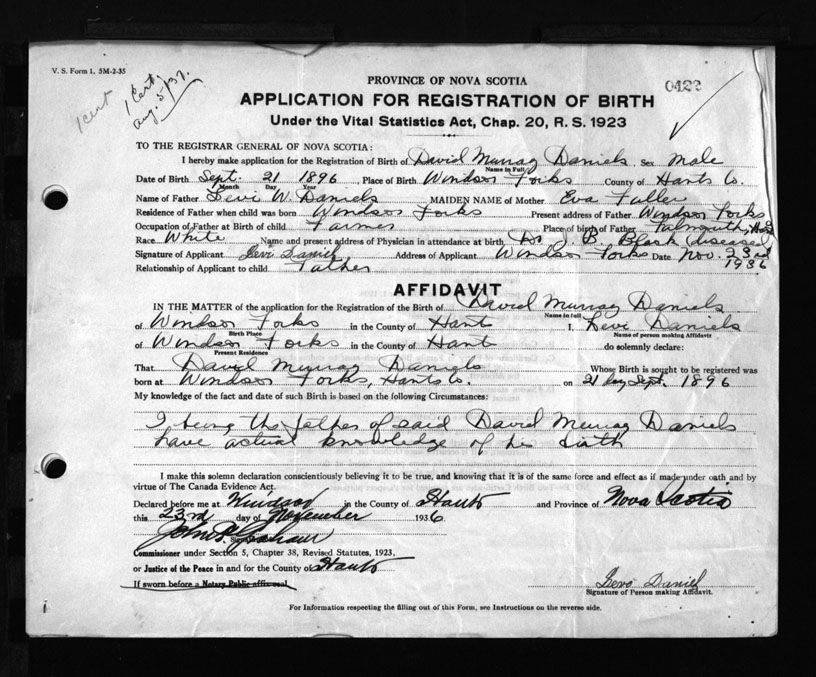 V. S. Form 1. 5M-2-35
1 cent
1 Cert.
Aug. 5/37.
0422
PROVINCE OF NOVA SCOTIA
APPLICATION FOR REGISTRATION OF BIRTH
Under the Vital Statistics Act, Chap. 20, R. S. 1923
TO THE REGISTRAR GENERAL OF NOVA SCOTIA:
I hereby make application for the Registration of Birth of David Murray Daniels Sex Male
Name in Full
Date of Birth Sept. 21 1896 Place of Birth Windsor Forks County of Hants Co.
Month Day Year
Name of Father Levi W. Daniels MAIDEN NAME of Mother Eva Fuller
Residence of Father when child was born Windsor Forks Present address of Father Windsor Forks
Occupation of Father at Birth of child Farmer Place of birth of Father Falmouth,
Race White Name and present address of Physician in attendance at birth Dr J. B. Black (diseased)
Signature of Applicant Levi Daniels Address of Applicant Windsor Forks Date Nov. 23rd
1936
Relationship of Applicant to child Father
AFFIDAVIT
IN THE MATTER of the application for the Registration of the Birth of David Murray Daniels
Name in Full
of Windsor Forks in the County of Hant I, Levi Daniels
Birth Place Name of person making Affidavit
of Windsor Forks in the County of Hant do solemnly declare:
Present Residence
That David Murray Daniels Whose Birth is sought to be registered was
born at Windsor Forks, Hants Co. on 21 day Sept. 1896
My knowledge of the fact and date of such Birth is based on the following Circumstances:
I being the father of said David Murray Daniels
have actual knowledge of his birth
I make this solemn declaration conscientiously believing it to be true, and knowing that it is of the same force and effect as if made under oath and by
virtue of The Canada Evidence Act.
Declared before me at Windsor in the County of Hants and Province of Nova Scotia
this 23rd day of November 1936
John
Commissioner under Section 5, Chapter 38, Revised Statutes, 1923,
or Justice of the Peace in and for the County of Hants
If sworn before a Notary Public affix seal.
Levi Daniels
Signature of Person making Affidavit.
For Information respecting the filling out of this Form, see Instructions on the reverse side.